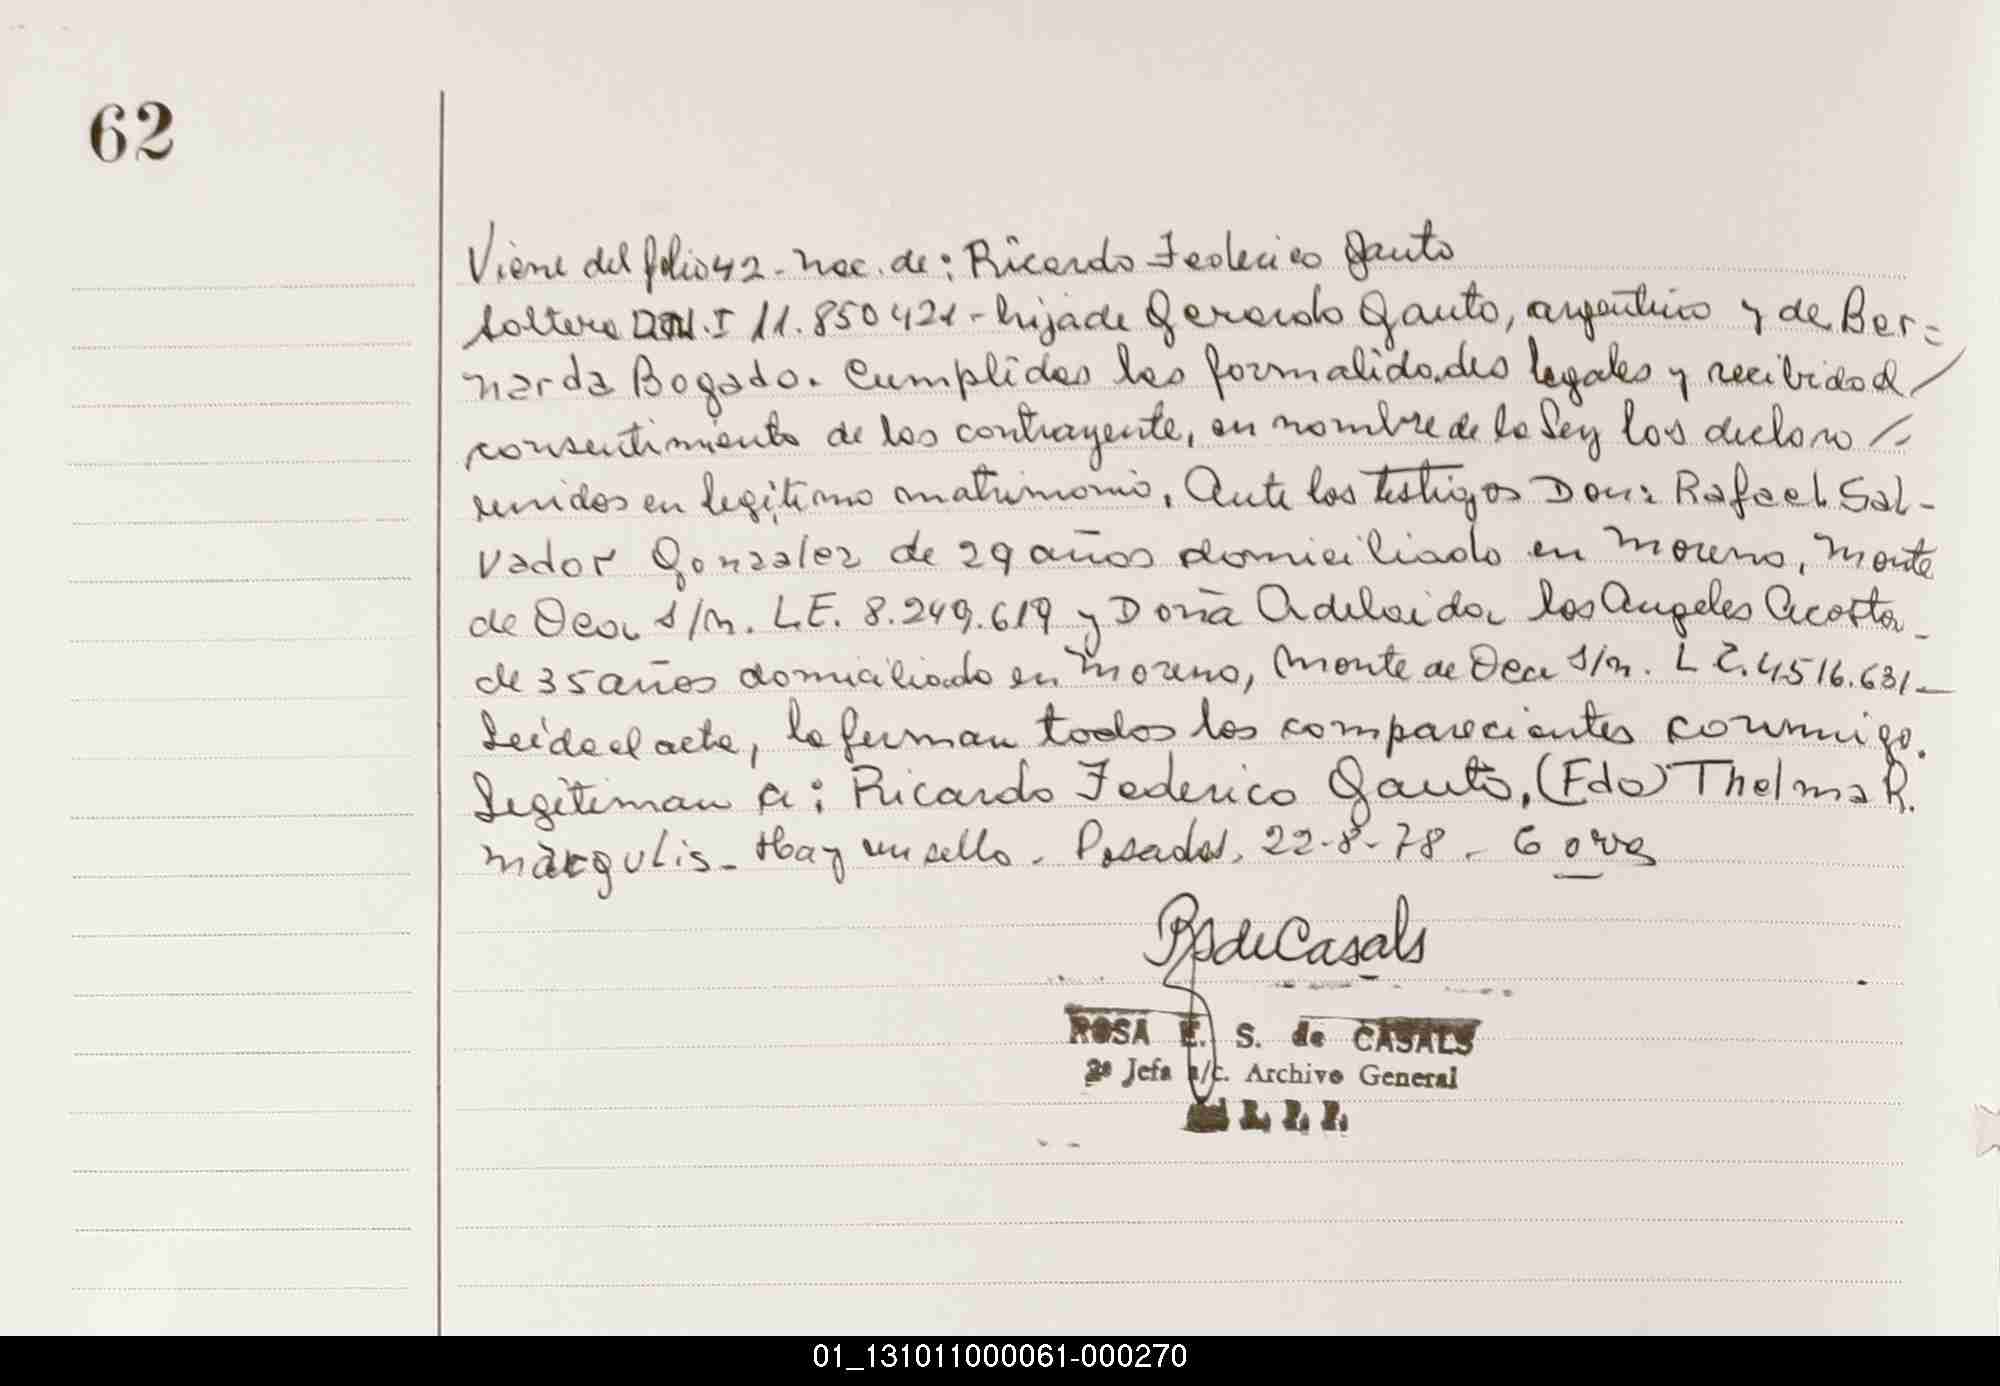 62
Viene del folio 42 - Nac. de: Ricardo Federico Gauto
soltera D.N.I 11.850421 - hija de Gerardo Gauto, argentino y de Ber=
narda Bogado. Cumplidas las formalidades legales y recibido el /
consentimiento de los contrayente, en nombre de la Ley los declaro /-
unidos en legítimo matrimonio. Ante los testigos Don: Rafael Sal-
vador Gonzalez de 29 años domiciliado en Moreno, Monte
de Oca s/n. L.E. 8.249.619 y Doña Adelaida los Angeles Acosta -
de 35 años domiciliado en Moreno, Monte de Oca s/n. L C. 4.516.631 -
Leída el acta, la firman todos los comparecientes conmigo.
Legitiman a: Ricardo Federico Gauto, (Fdo) Thelma R.
Margulis - Hay un sello. Posadas, 22-8-78 -
RSdeCasals
ROSA E. S. de CASALS
2ª Jefa a/c. Archivo General
01_131011000061-000270